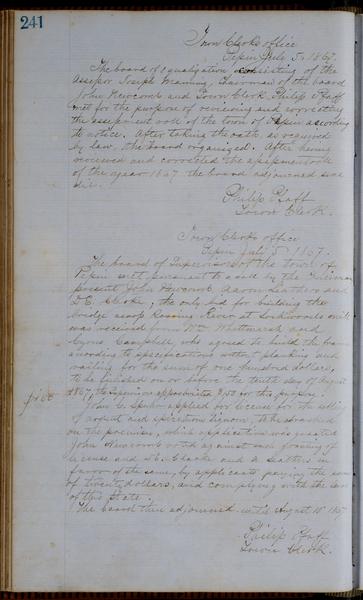 241
Town Clerk's office
Pepin July 5, 1867.
The board of equalization consisting of the
assessor Joseph Manning, Chairman of the board
John Newcomb and Town Clerk Philip Pfaff
met for the purpose of reviewing and correcting
the assessment roll of the town of Pepin according
to notice. After taking the oath as required
by law, the board organized. After having
reviewed and corrected the assessment roll
of the year 1867 the board adjourned sine
die.
Philip Pfaff
Town Clerk.
Town Clerk's office
Pepin July 5, 1867.
The board of Supervisors of the town of
Pepin met pursuant to a call by the Chairman
present John Newcomb Aaron and
D.C. Clarke, the only bid for building the
bridge across River at mill
was received from Wm Whitmarsh and
Cyrus Campbell, who agreed to build the same
according to specifications without planking and
railing for the sum of one hundred dollars,
to be finished on or before the tenth day of August
1867, the supervisors appropriated $150 for this purpose.
$150
John C. applied for license for the selling
of ardent and spirituous liquors, to be drank
on the premises, his application was granted
John Newcomb voth against and
license and D.C. Clarke and A in
favor of the same, by applicants paying the sum
of twenty dollars, and complying with the law
of this State.
The board then adjourned until August 10 1867
Philip Pfaff
Town Clerk.